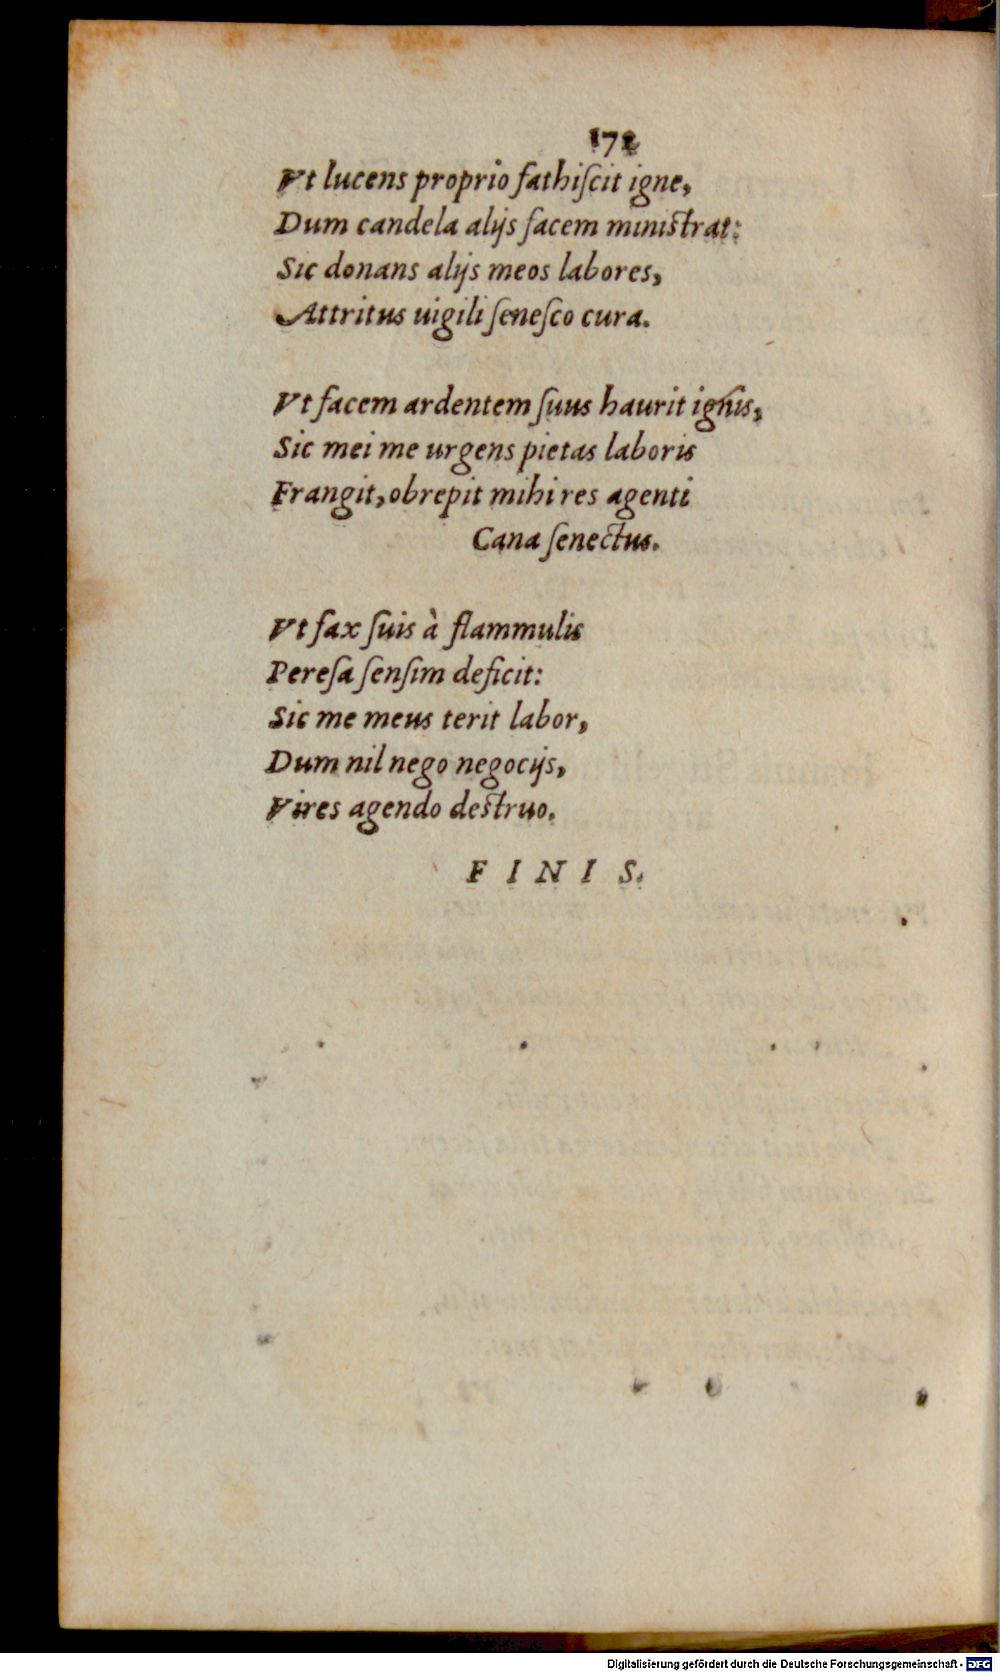 172
Vt lucens proprio fathiſcit igne,
Dum candela alijs facem miniſtrat:
Sic donans alijs meos labores,
Attritus uigili ſeneſco cura.
Vt facem ardentem ſuus haurit ignis,
Sic mei me urgens pietas laboris
Frangit, obrepit mihi res agenti
Cana ſenectus.
Vt fax ſuis à flammulis
Pereſa ſenſim deficit:
Sic me meus terit labor,
Dum nil nego negocijs,
Vires agendo deſtruo.
FINIS.
Digitalisierung gefördert durch die Deutsche Forschungsgemeinschaft - DFG